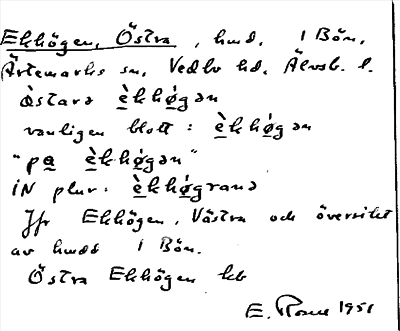 Ekhögen, Östra, hmd, i Bön,
Ärtemarks sn, Vedbo hd, Älvsb. l.
ə̀starə ὲkhǿgən
vanligen blott: ὲkhǿgən
"pa ὲkhǿgən"
IN plur: ὲkhǿgranə
Jfr Ekhögen, Västra och översikt
av hmdd i Bön.
Östra Ekhögen kb
E. 1951